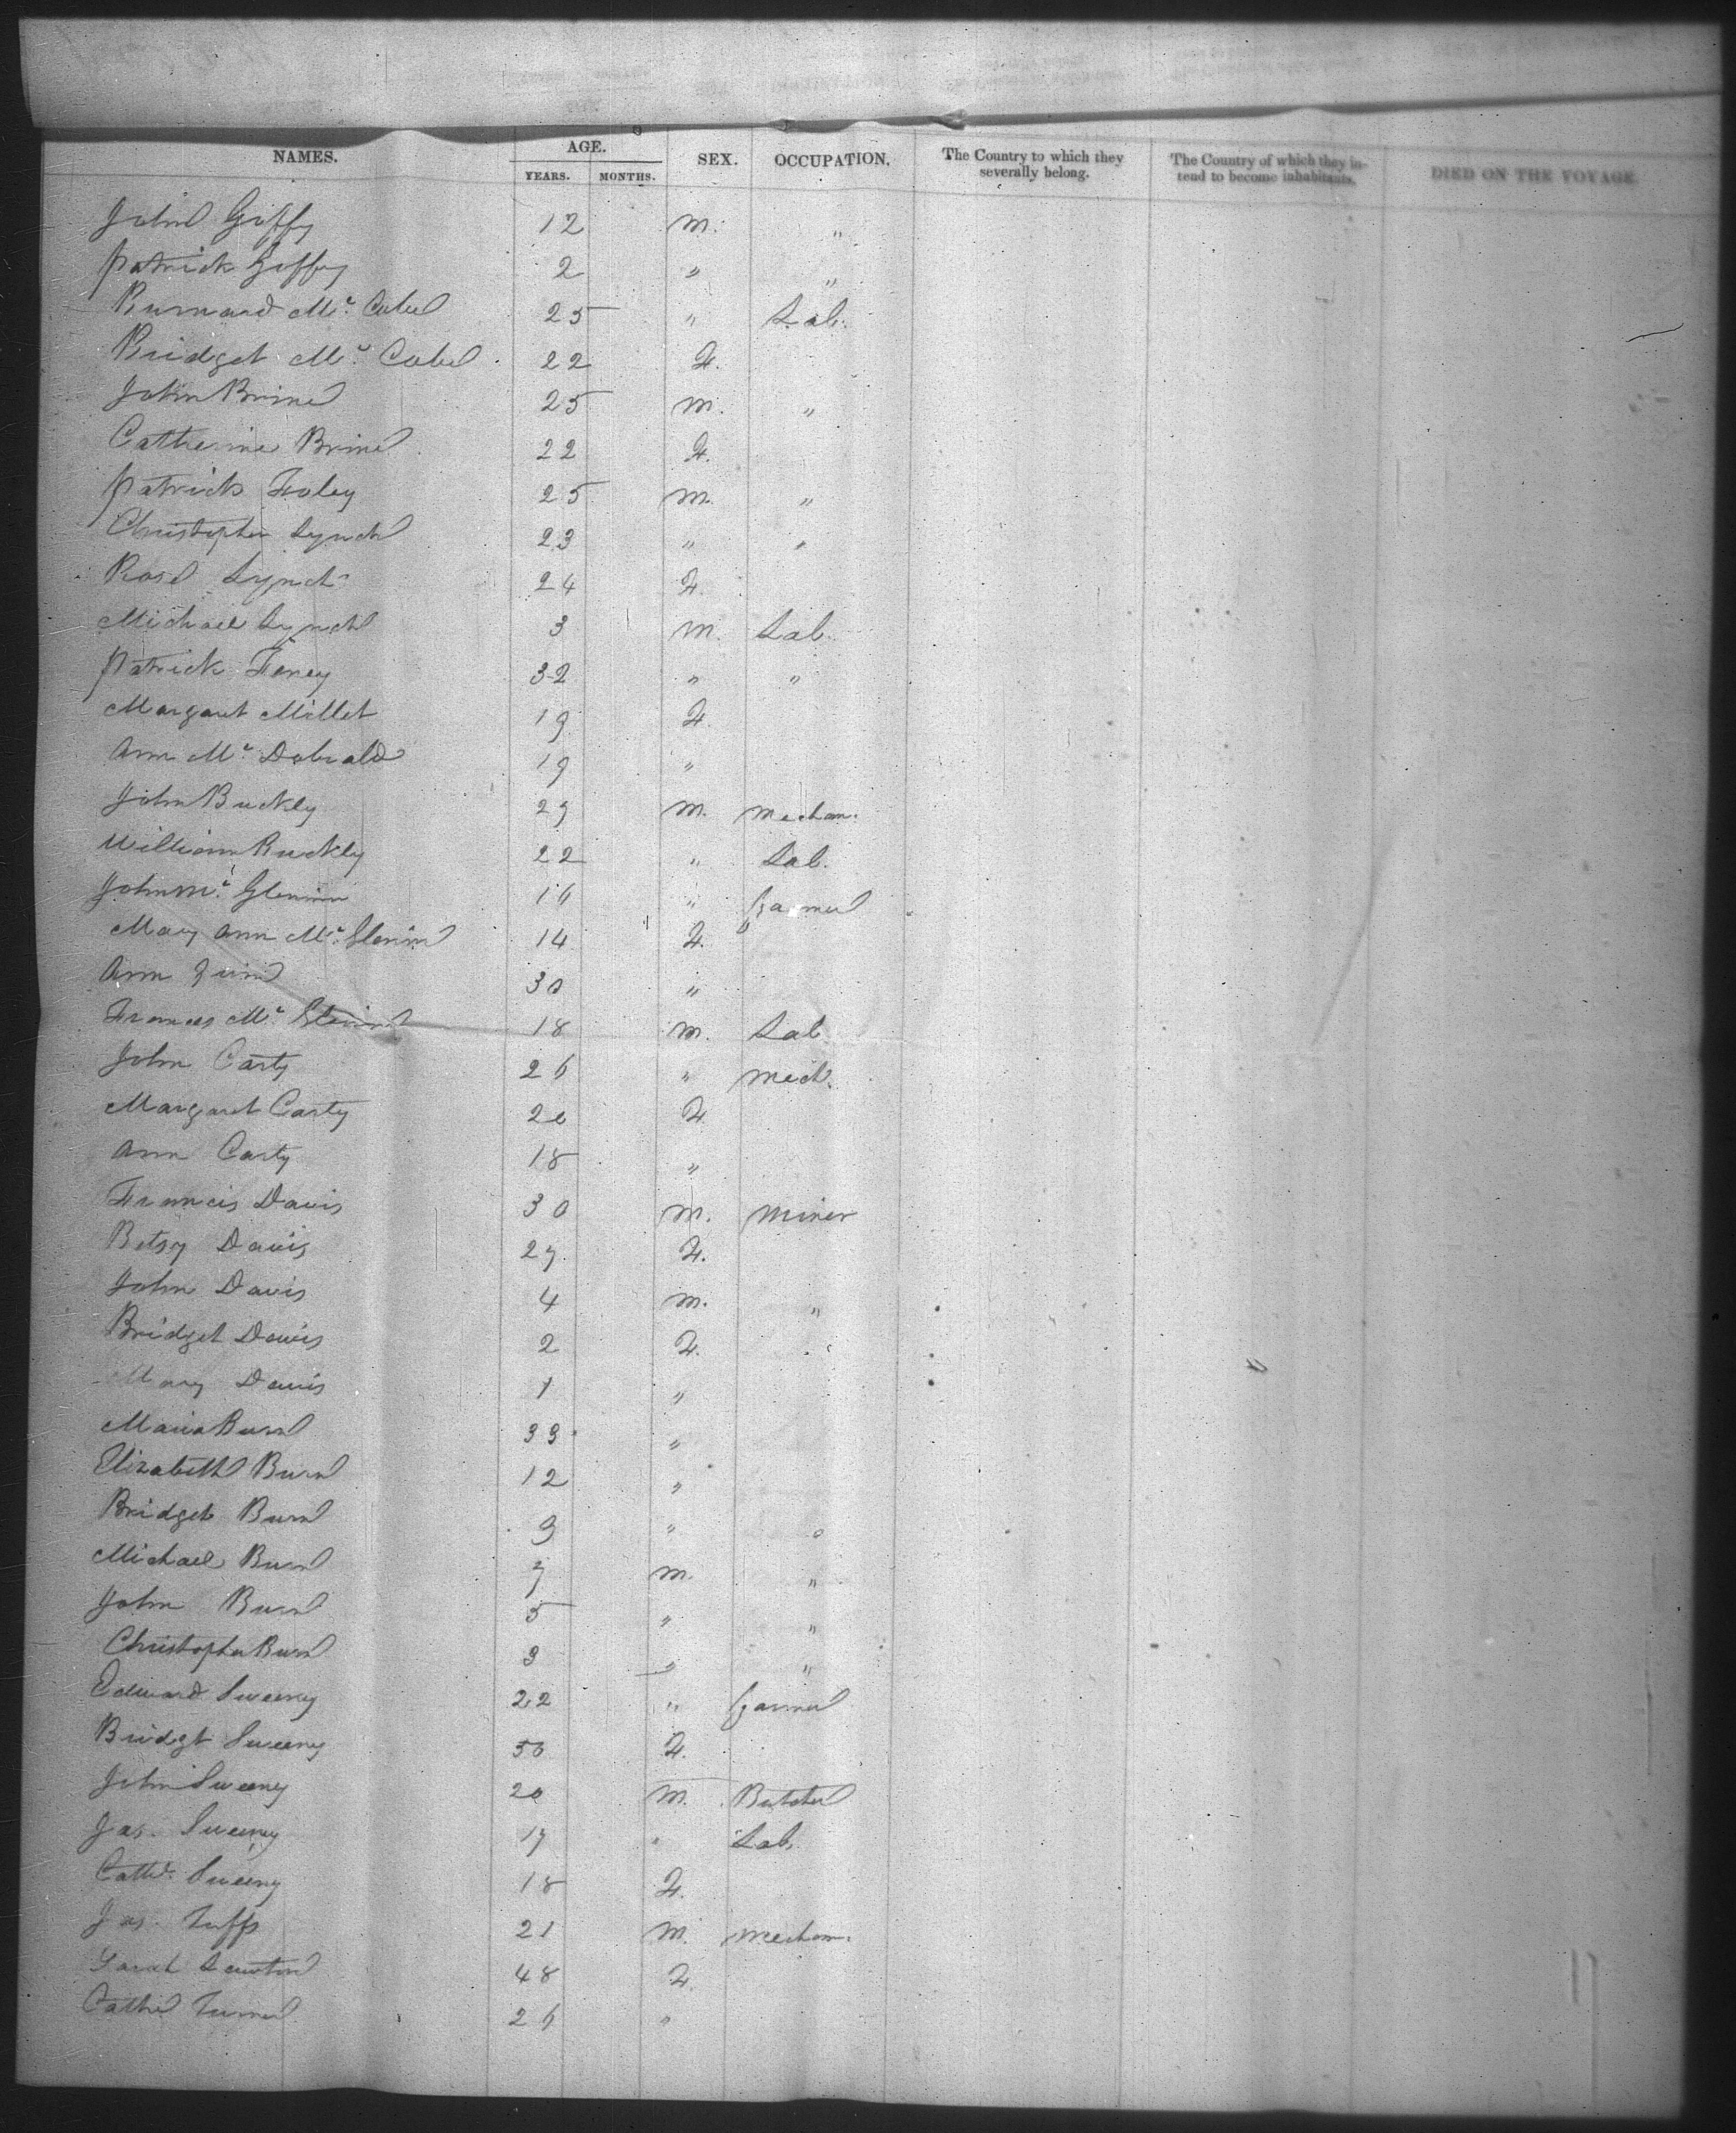 NAMES. AGE. SEX. OCCUPATION. The Country to which they severally belong. The Country of which they intend to become inhabitants. DIED ON THE VOYAGE.
YEARS. MONTHS.
John Giffy 12 M. "
Patrick Giffy 2 " "
Burnard Mc. Cabe 25 " Lab.
Bridget Mc. Cabe 22 F.
John Brine 25 M. "
Catherine Brine 22 F.
Patrick Foley 25 M. "
Christopher Lynch 23 " "
Rose Lynch 24 F.
Michael Lynch 3 M. Lab.
Patrick Feney 32 " "
Margaret Millet 19 F.
Ann Mc. Donald 19 "
John Buckly 29 M. Mechan.
William Buckly 22 " Lab.
John Mc. Gleninn 16 " Farmer
Mary Ann Mc. Glenin 14 F. "
Ann Quinn 30 "
Frances Mc. 18 M. Lab.
John Carty 26 " Mech.
Margaret Carty 20 F.
Ann Carty 18 "
Francis Davis 30 M. Miner
Betsy Davis 27 F.
John Davis 4 M. "
Bridget Davis 2 F.
Mary Davis 1 "
Maria Burn 33 "
Elizabeth Burn 12 "
Bridget Burn 9 " "
Michael Burn 7 M. "
John Burn 5 " "
Christopher Burn 3 " "
Edward Sweeny 22 " Farmer
Bridgt Sweeny 50 F.
John Sweeny 20 M. Butcher
Jas. Sweeny 17 " Lab.
Cathe. Sweeny 18 F.
Jas. Tuffs 21 M. Mechan.
Sarah 48 F.
Cathe 26 "